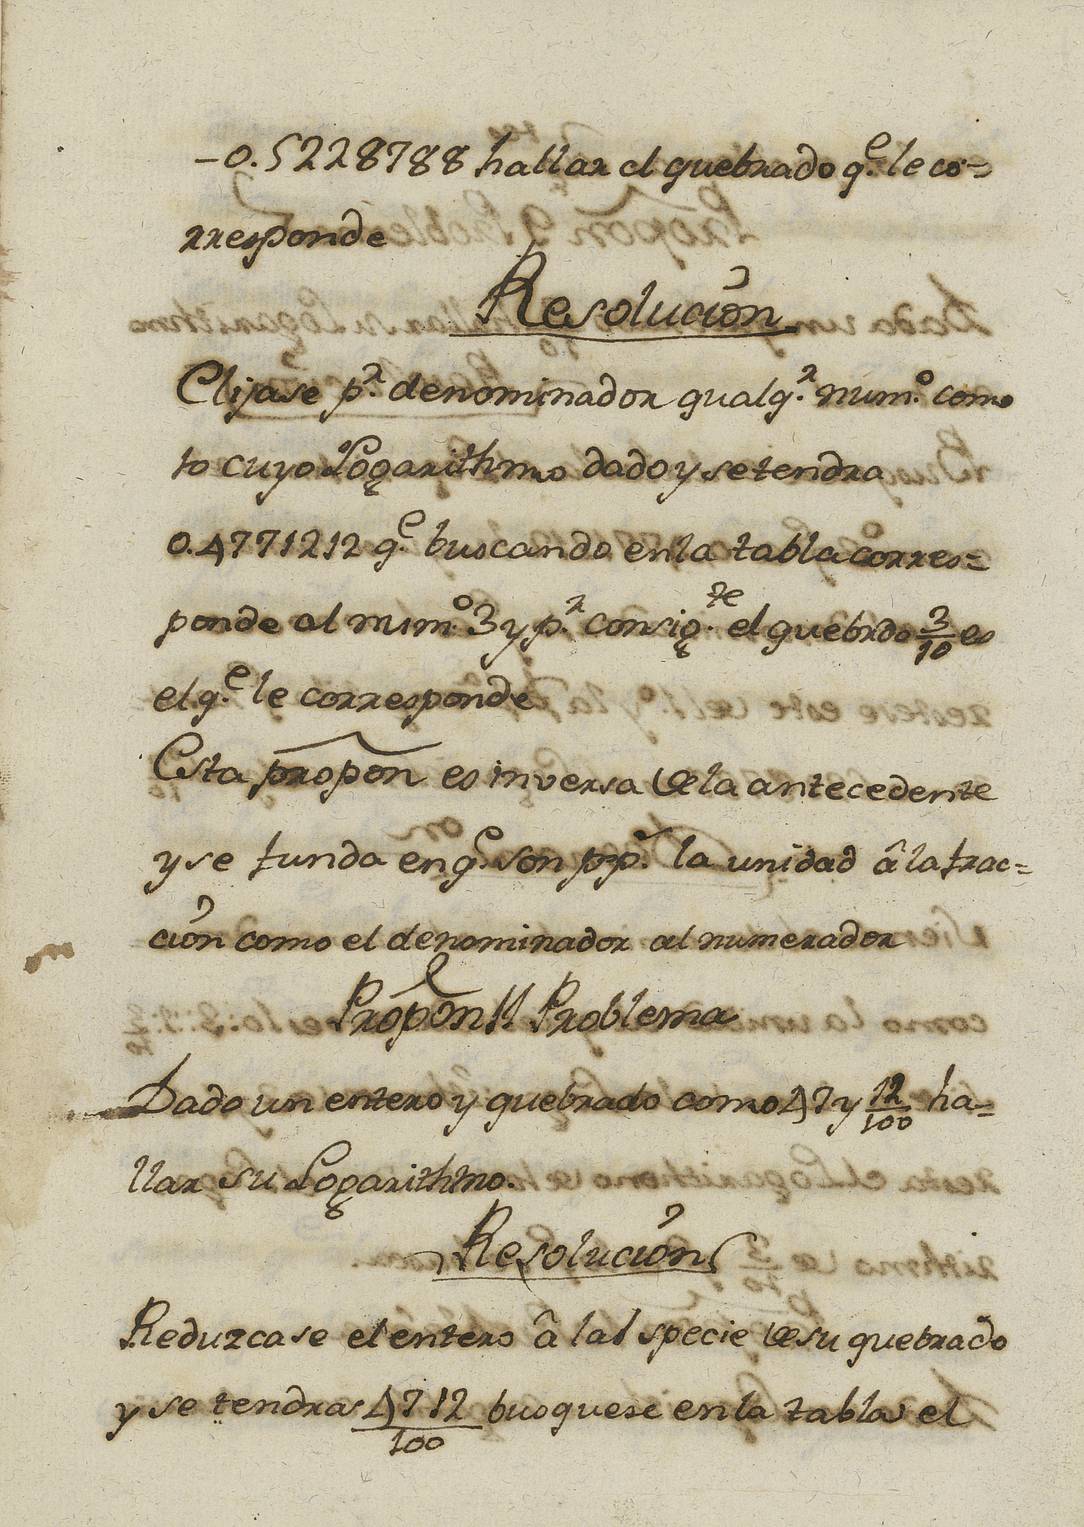 -0.5228788 hallar el quebrado q.e le co=
rresponde
Resolución
Elijase p.r denominador qualq.r num.o como
to cuyo Logarithmo dado y se tendra
0.4771212 q.e buscando en la tabla corres=
ponde al num.o 3 y p.r consig.te el quebrado 3/10 es
el q.e le corresponde
Esta propon es inversa de la antecedente
y se funda en q.e son pp.s la unidad â la frac=
ción como el denominador al numerador
Propon 11 Problema
Dado un entero y quebrado como 47 y 12/100 ha=
llar su Logarithmo.
Resolución
Reduzcase el entero â la especie de su quebrado
y se tendra 4712/100 busquese en la tabla el